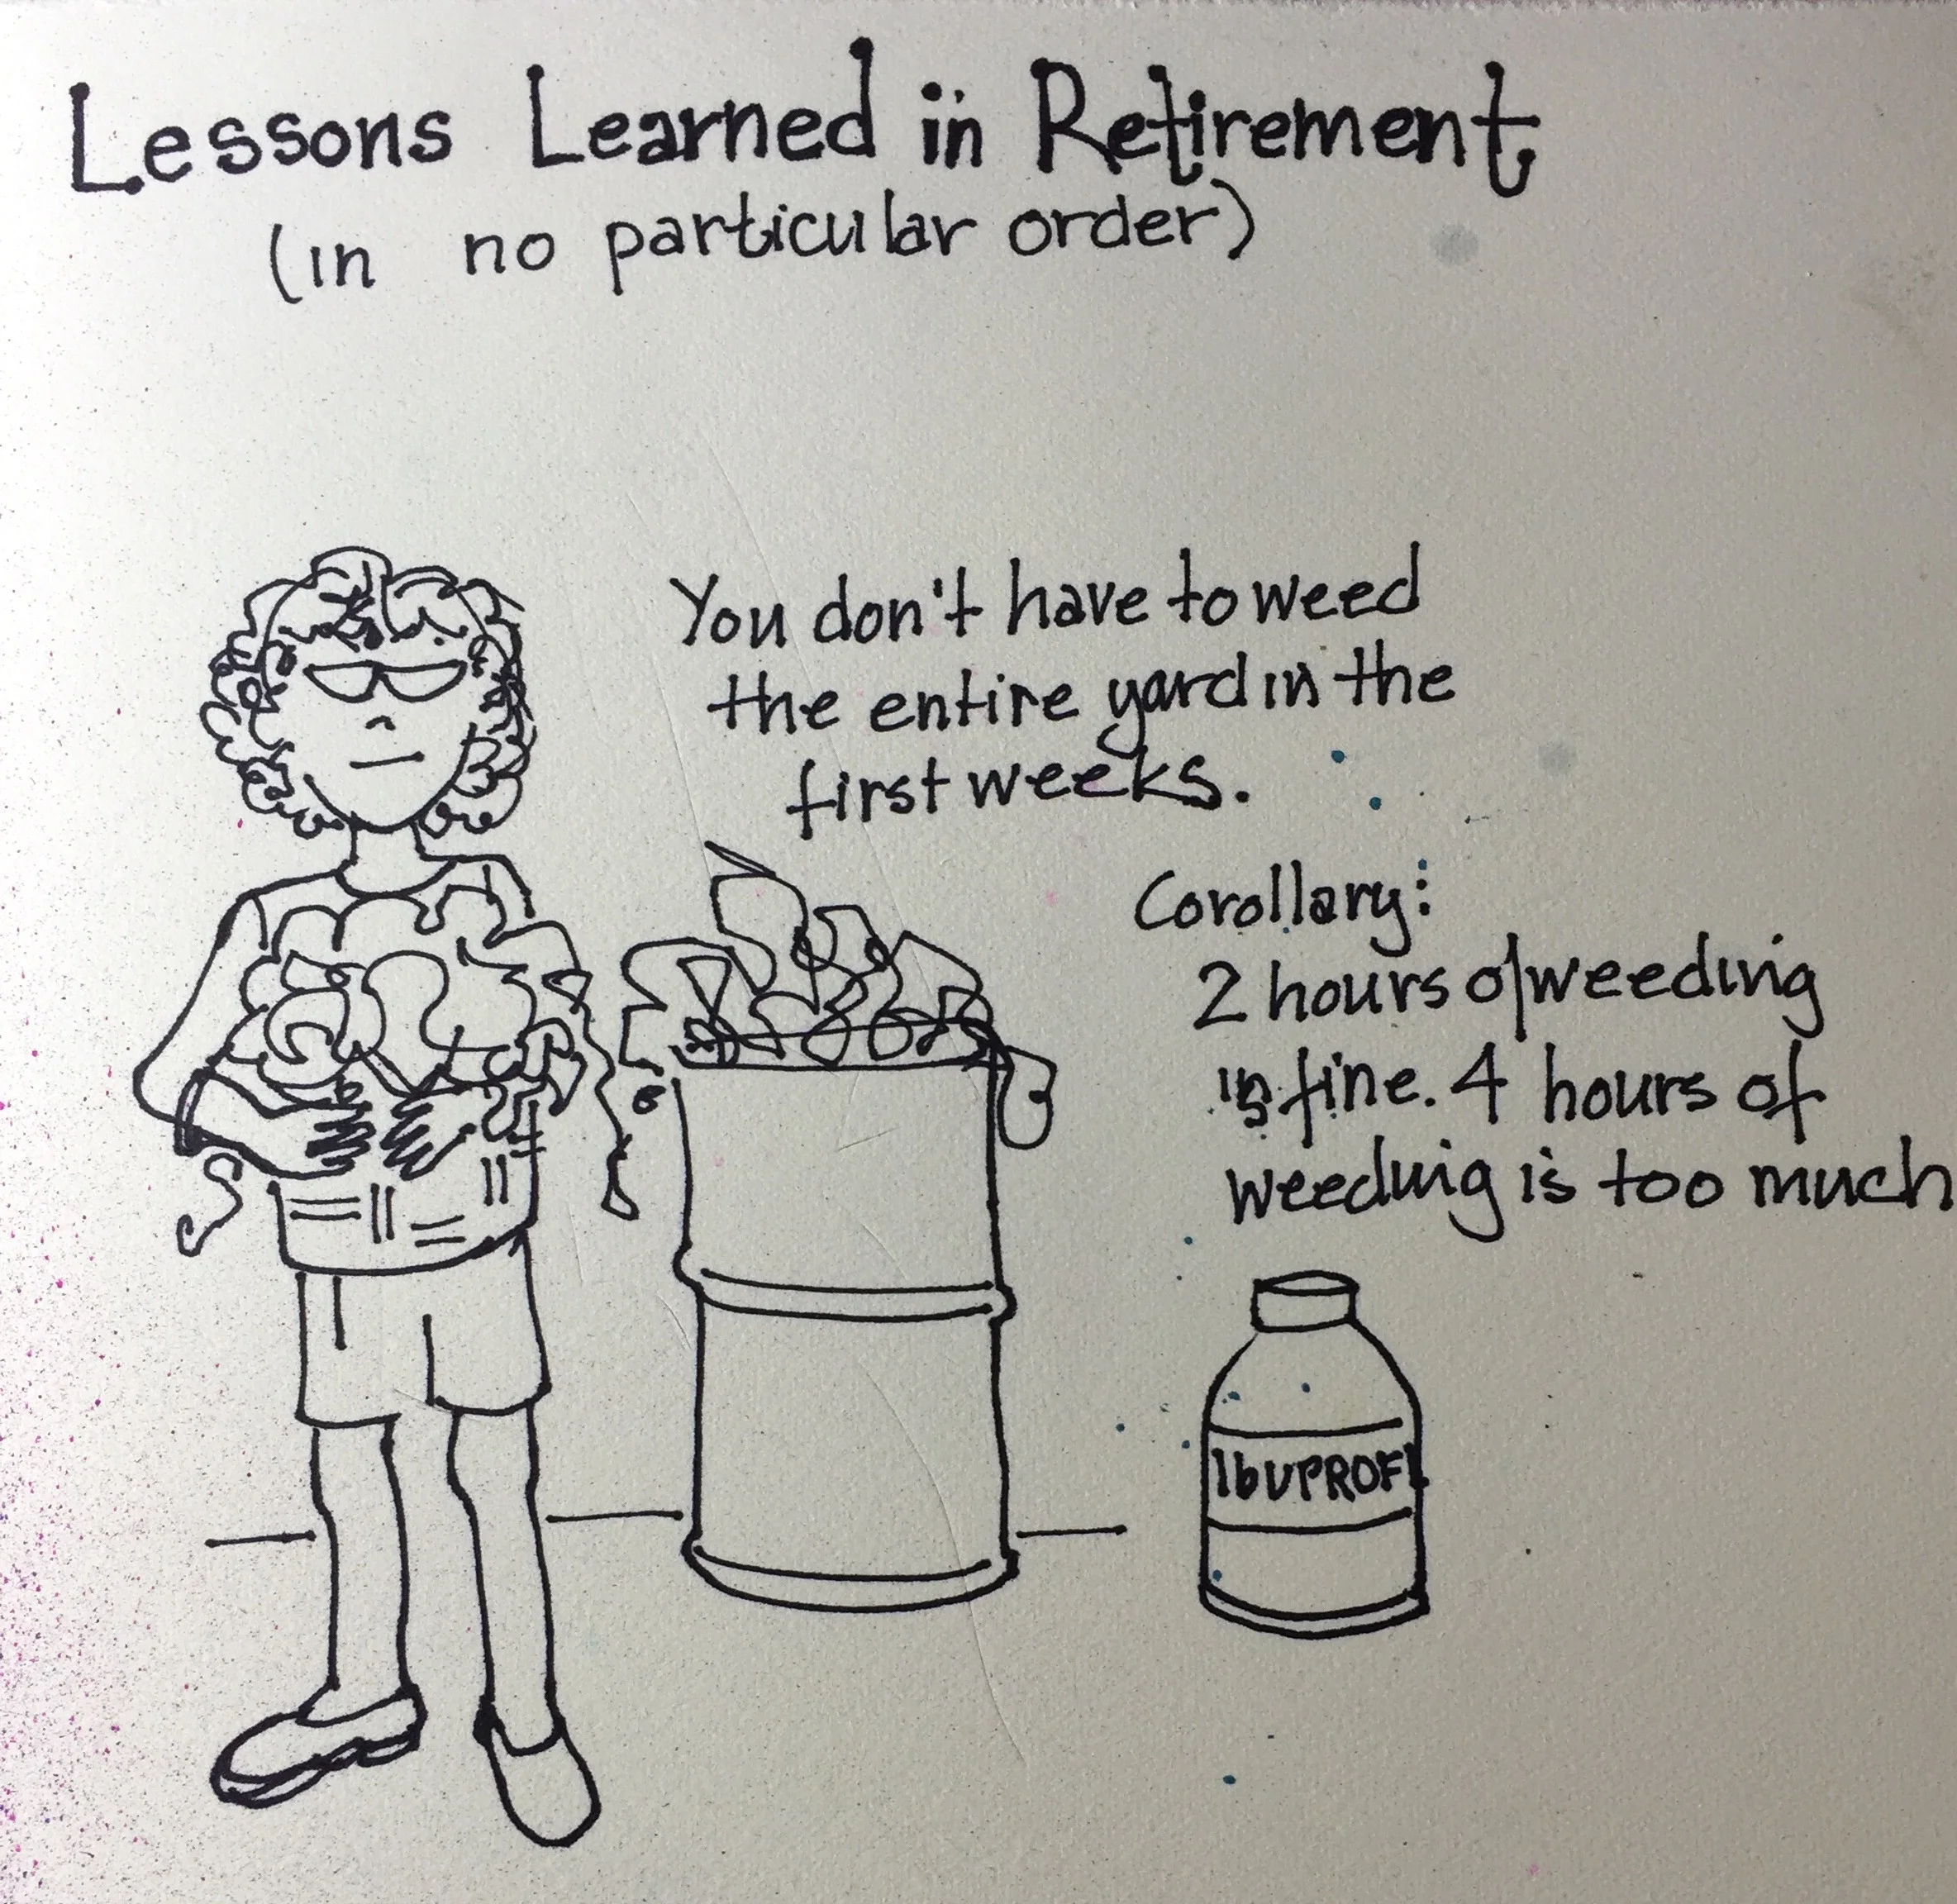 Lessons Learned in Retirement
(in no particular order)
You don't have to weed
the entire yard in the
first weeks.
Corollary:
2 hours of weeding
is fine. 4 hours of
weeding is too much
IbUPROFE